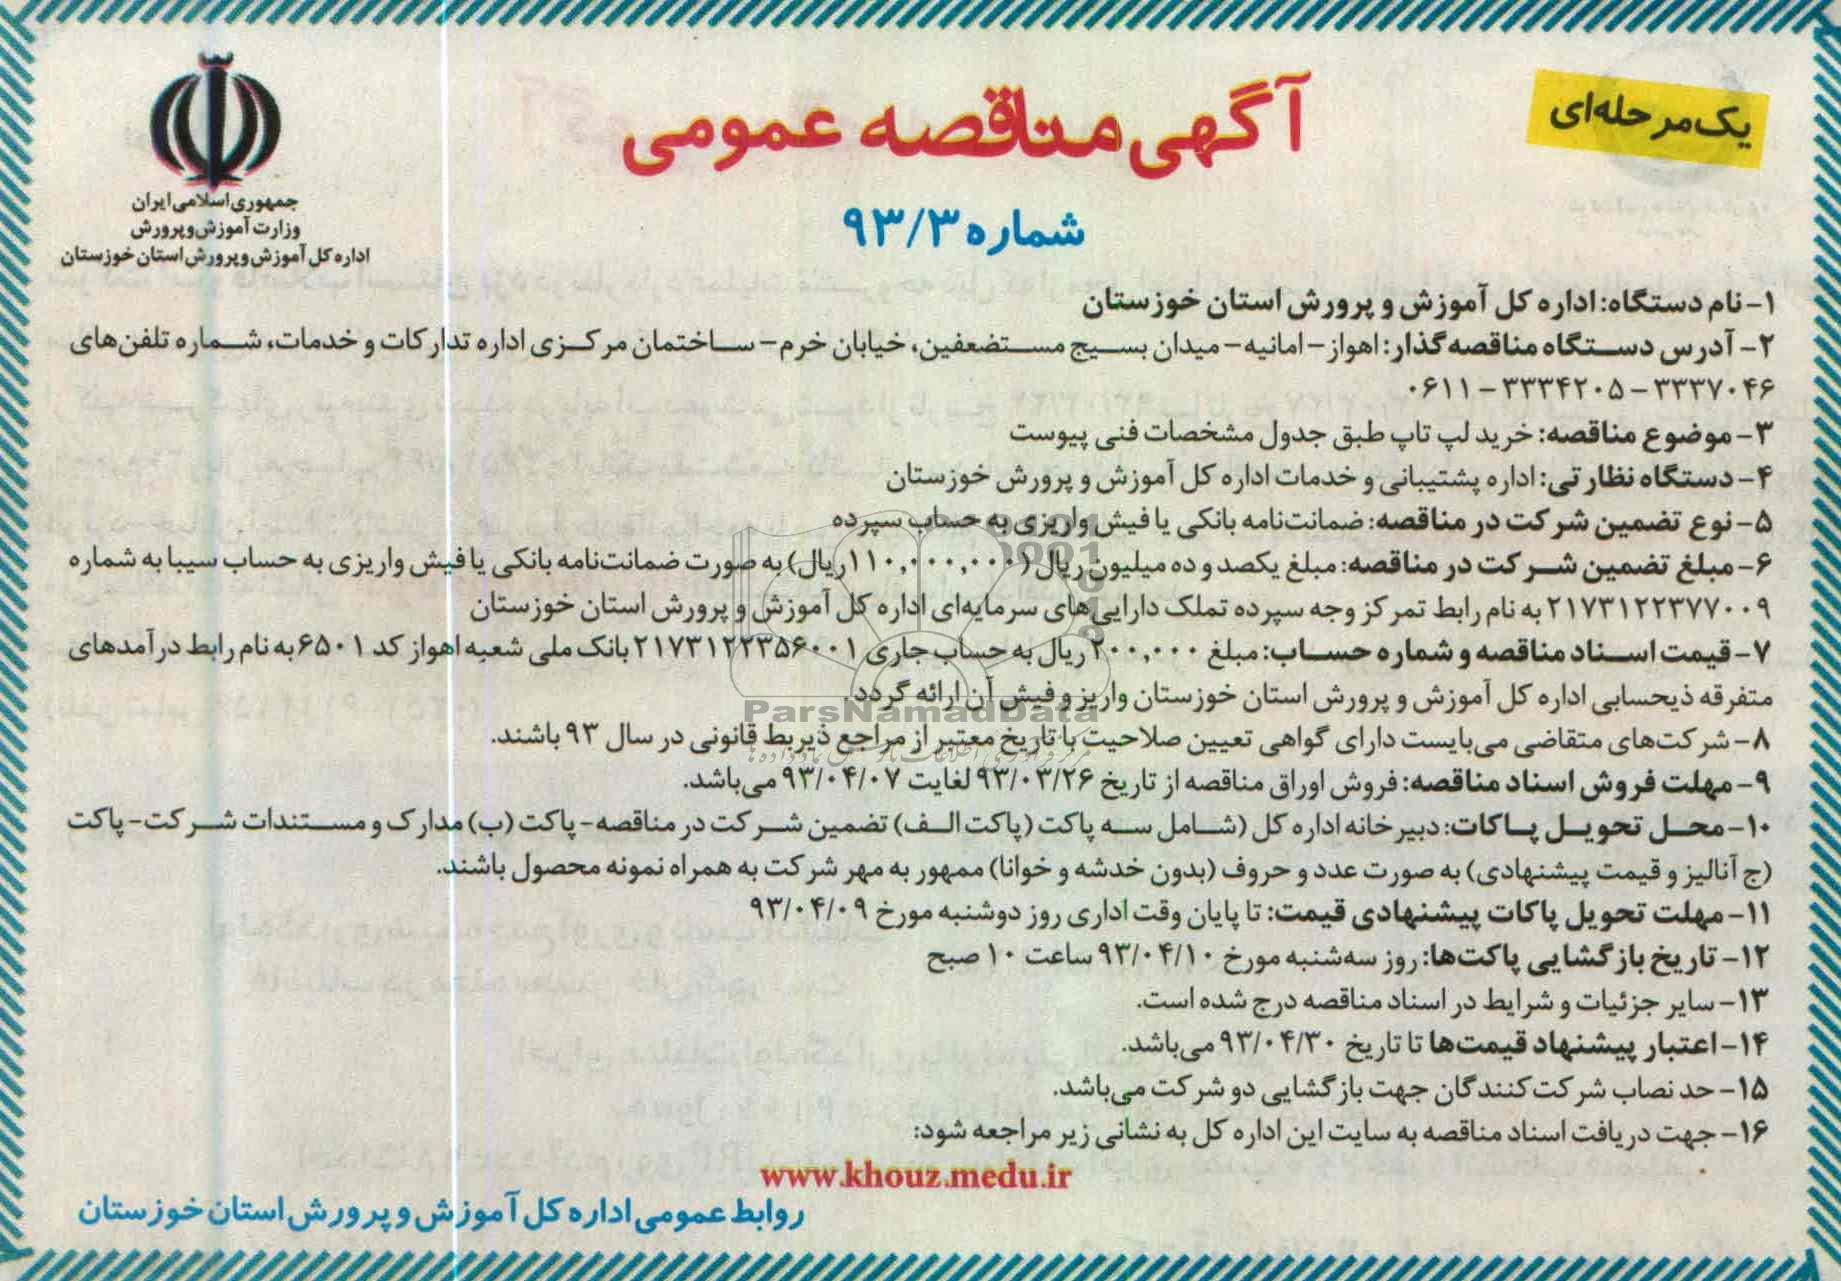 یک‌مرحله‌ای
آگهی مناقصه عمومی
شماره ۹۳/۳
جمهوری اسلامی ایران
وزارت آموزش و پرورش
اداره کل آموزش و پرورش استان خوزستان
۱- نام دستگاه: اداره کل آموزش و پرورش استان خوزستان
۲- آدرس دستگاه مناقصه‌گذار: اهواز- امانیه- میدان بسیج مستضعفین، خیابان خرم- ساختمان مرکزی اداره تدارکات و خدمات، شماره تلفن‌های
۳۳۳۷۰۴۶ - ۳۳۳۴۲۰۵ - ۰۶۱۱
۳- موضوع مناقصه: خرید لپ تاپ طبق جدول مشخصات فنی پیوست
۴- دستگاه نظارتی: اداره پشتیبانی و خدمات اداره کل آموزش و پرورش خوزستان
۵- نوع تضمین شرکت در مناقصه: ضمانت‌نامه بانکی یا فیش واریزی به حساب سپرده
۶- مبلغ تضمین شرکت در مناقصه: مبلغ یکصد و ده میلیون ریال (۱۱۰,۰۰۰,۰۰۰ریال) به صورت ضمانت‌نامه بانکی یا فیش واریزی به حساب سیبا به شماره
۲۱۷۳۱۲۲۳۷۷۰۰۹ به نام رابط تمرکز وجه سپرده تملک دارایی‌های سرمایه‌ای اداره کل آموزش و پرورش استان خوزستان
۷- قیمت اسناد مناقصه و شماره حساب: مبلغ ۲۰۰,۰۰۰ ریال به حساب جاری ۲۱۷۳۱۲۲۳۵۶۰۰۱ بانک ملی شعبه اهواز کد ۶۵۰۱ به نام رابط درآمدهای
متفرقه ذیحسابی اداره کل آموزش و پرورش استان خوزستان واریز و فیش آن ارائه گردد.
۸- شرکت‌های متقاضی می‌بایست دارای گواهی تعیین صلاحیت با تاریخ معتبر از مراجع ذیربط قانونی در سال ۹۳ باشند.
۹- مهلت فروش اسناد مناقصه: فروش اوراق مناقصه از تاریخ ۹۳/۰۳/۲۶ لغایت ۹۳/۰۴/۰۷ می‌باشد.
۱۰- محل تحویل پاکات: دبیرخانه اداره کل (شامل سه پاکت (پاکت الف) تضمین شرکت در مناقصه- پاکت (ب) مدارک و مستندات شرکت- پاکت
(ج آنالیز و قیمت پیشنهادی) به صورت عدد و حروف (بدون خدشه و خوانا) ممهور به مهر شرکت به همراه نمونه محصول باشند.
۱۱- مهلت تحویل پاکات پیشنهادی قیمت: تا پایان وقت اداری روز دوشنبه مورخ ۹۳/۰۴/۰۹
۱۲- تاریخ بازگشایی پاکت‌ها: روز سه‌شنبه مورخ ۹۳/۰۴/۱۰ ساعت ۱۰ صبح
۱۳- سایر جزئیات و شرایط در اسناد مناقصه درج شده است.
۱۴- اعتبار پیشنهاد قیمت‌ها تا تاریخ ۹۳/۰۴/۳۰ می‌باشد.
۱۵- حد نصاب شرکت‌کنندگان جهت بازگشایی دو شرکت می‌باشد.
۱۶- جهت دریافت اسناد مناقصه به سایت این اداره کل به نشانی زیر مراجعه شود:
www.khouz.medu.ir
روابط عمومی اداره کل آموزش و پرورش استان خوزستان
ParsNamadData